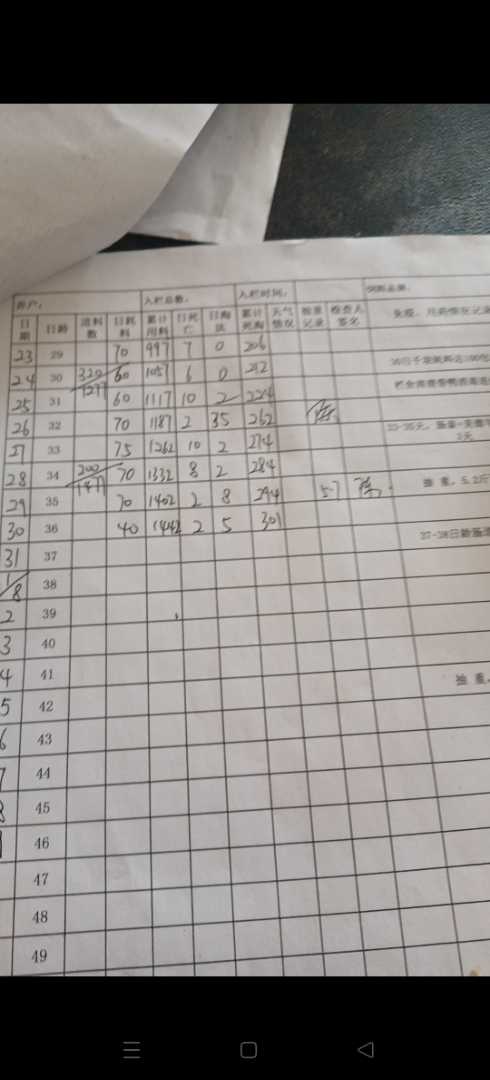 养户： 入栏总数： 入栏时间： 饲料品种：
日期 日龄 进料数 日耗料 累计用料 日死亡 日淘汰 累计死淘 天气情况 称重记录 检查人签名 免疫、用药情况记录
23 29 70 997 7 0 206
24 30 320/1277 60 1057 6 0 212
25 31 60 1117 10 2 224
26 32 70 1187 2 35 262
27 33 75 1262 10 2 274
28 34 200/1477 70 1332 8 2 284
29 35 70 1402 2 8 294 5.7 抽 重，5.2斤
30 36 40 1442 2 5 301
31 37
1/8 38
2 39
3 40
4 41 抽 重，
5 42
6 43
7 44
8 45
46
47
48
49